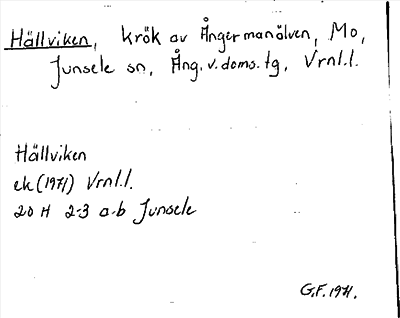 Hällviken, krök av Ångermanälven, Mo,
Junsele sn, Ång. v. doms. tg, Vrnl.l.
Hällviken
ek (1971) Vrnl.l.
20 H 2-3 a-b Junsele
G.F. 1971.